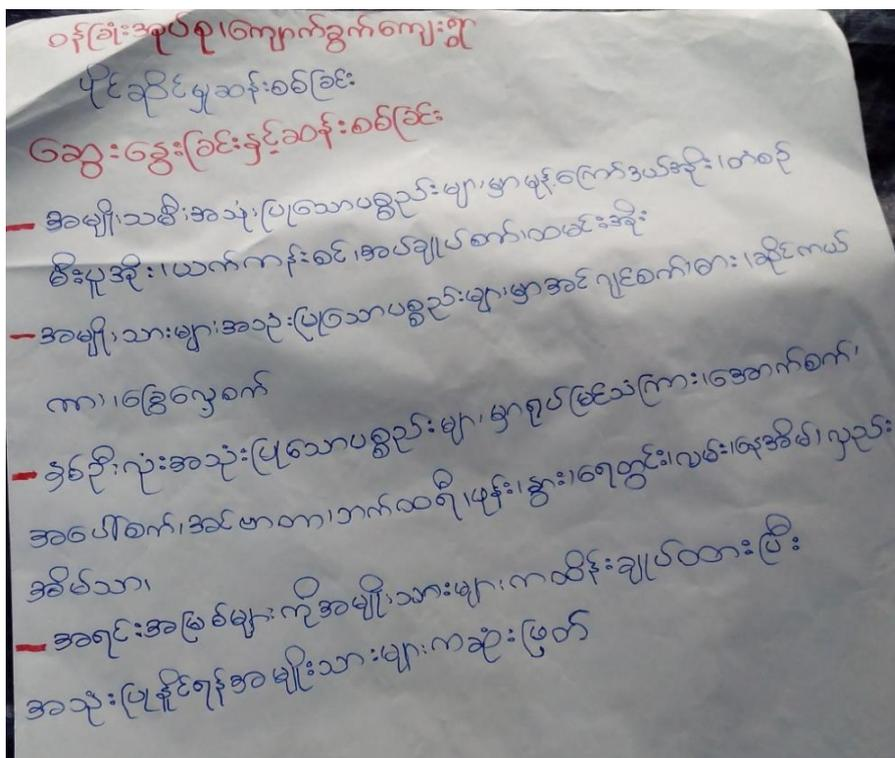 ဝန်ခြုံးအုပ်စု၊ကျောက်ခွက်ကျေးရွာ
ပိုင်ဆိုင်မှုဆန်းစစ်ခြင်း
ဆွေးနွေးခြင်းနှင့်ဆန်းစစ်ခြင်း
– အမျိုးသမီးအသုံးပြုသောပစ္စည်းများမှာမုန့်ကြော်ဒယ်အိုး၊တံစဉ်
မီးပူအိုး၊ယက်ကန်းစင်၊အပ်ချုပ်စက်၊ထမင်းအိုး
– အမျိုးသားများအသုံးပြုသောပစ္စည်းများမှာအင်ဂျင်စက်၊ဓား၊ဆိုင်ကယ်
ကား၊ခြွေလှေ့စက်
– နှစ်ဦးလုံးအသုံးပြုသောပစ္စည်းများမှာရုပ်မြင်သံကြား၊အောက်စက်၊
အပေါ်စက်၊အင်ဗာတာ၊ဘက်ထရီ၊ဖုန်း၊နွား၊ရေတွင်း၊လမ်း၊နေအိမ်၊လှည်း
အိမ်သာ၊
– အရင်းအမြစ်များကိုအမျိုးသားများကထိန်းချုပ်ထားပြီး
အသုံးပြုနိူင်ရန်အမျိုးသားများကဆုံးဖြတ်